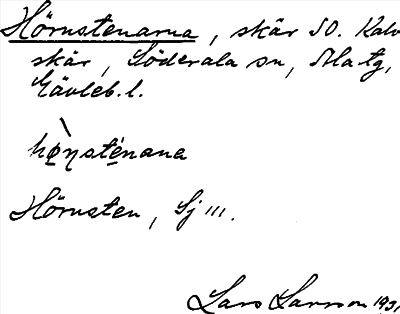 Hörnstenarna, skär SO. Kalv
skär, Söderala sn, Ala tg,
Gävleb. l.
hø̀ɳsténana
Hörnsten, Sj III.
Lars Larsson 193